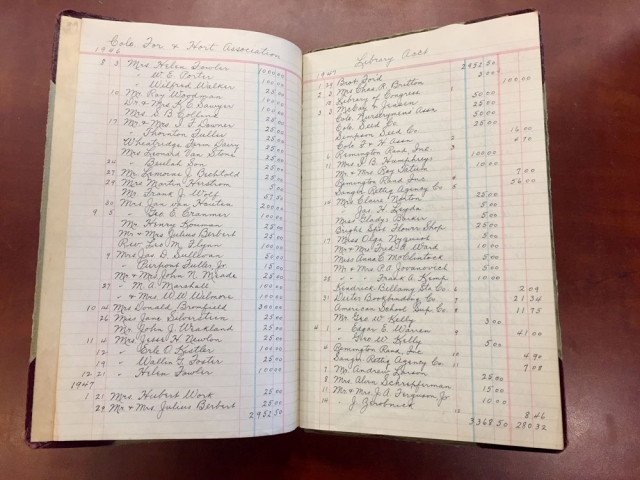 Colo. For. & Hort. Association
1946
8 3 Mrs Helen Fowler 1000.00
" W. E. Porter 100.00
" Wilfred Walker 25.00
14 Mr. Ray Woodman 25.00
Dr & Mrs K. C. Sawyer 100.00
Mrs. S. B. Collins
17 Mr. & Mrs. I. I. Downer
" Thornton Fuller 25.00
Wheatridge Farm Dairy 25.00
Mrs Leonard Van Stone 25.00
24 " Beulah Son
27 Mr. Lemoine J. Bechtold 25.00
29 Mrs Martin Herstrom 25.00
Mr. Frank J. Wolf 5.00
30 Mrs Jan van Houten
9 5 " Geo. E. Cranmer 100.00
Mr. Henry Kouman 25.00
Mr. & Mrs Julius Berbert 25.00
Rev. Leo M. Flynn 100.00
9 Mrs Jas D. Sullivan 50.00
" Pierpont Fuller, Jr. 15.00
Mr. & Mrs John N. Meade 25.00
27 " M. A. Marshall 100.00
" & Mrs W. W. Wilmore 100.00
10 14 Mrs Donald Bromfield 300.00
26 Miss Jane Silverstein 25.00
Mr. John J. Weakland 25.00
11 4 Mrs Jess H. Newton 25.00
12 " Erle O. Kistler 100.00
19 " Walter T. Foster 25.00
12 21 " Helen Fowler 100.00
1947
1 21 Mrs. Hubert Work 25.00
29 Mr. & Mrs. Julius Berbert 25.00
2952.50
Library Acct
1947 2952.50
1 29 Brot. Ford 500
2 3 Mrs Chas. R. Britton 1 100.00
10 Library of Congress 25.00
3 3 McCoy & Jensen 25.00
Colo. Nurserymens Assn 50.00
Colo. Seed Co. 25.00
Simpson Seed Co.
Colo F & H Assn 2 16.00
6 Remington Rand, Inc. 3 4.70
11 Mrs. I. B. Humphreys 100.00
Mr. & Mrs. Ray Tatum 10.00
Remington Rand Inc 4 7.00
Sanger Rettig Agency Co. 5 56.00
14 Mrs Claire Norton 25.00
" Jas. H. Krigda 5.00
Miss Gladys Barker 5.00
Bright Spot Flower Shop 25.00
17 Miss Olga Nygrist 5.00
Mr. & Mrs. Fred R. Ward 10.00
Miss Anna E. McClintock 5.00
Mr. & Mrs. P. A. Jovanovich 5.00
25 " " Frank A. Kemp 10.00
Kendrick-Bellamy Sta Co. 6 2.09
31 Dieter Bookbinding Co. 7 21.34
American School Sup. Co. 8 11.75
Mr. Geo W. Kelly 3.00
4 1 " Edgar E. Warren 9 41.00
" Geo W. Kelly 5.00
4 Remington Rand, Inc 10 4.90
Sanger Rettig Agency Co. 11 7.48
7 Mr. Andrew Larson 25.00
8 Mrs. Alvin Schrepferman 15.00
11 Mr. & Mrs. J. A. Ferguson Jr 10.00
14 " J. Zarobnick 12 8.46
3368.50 280.32